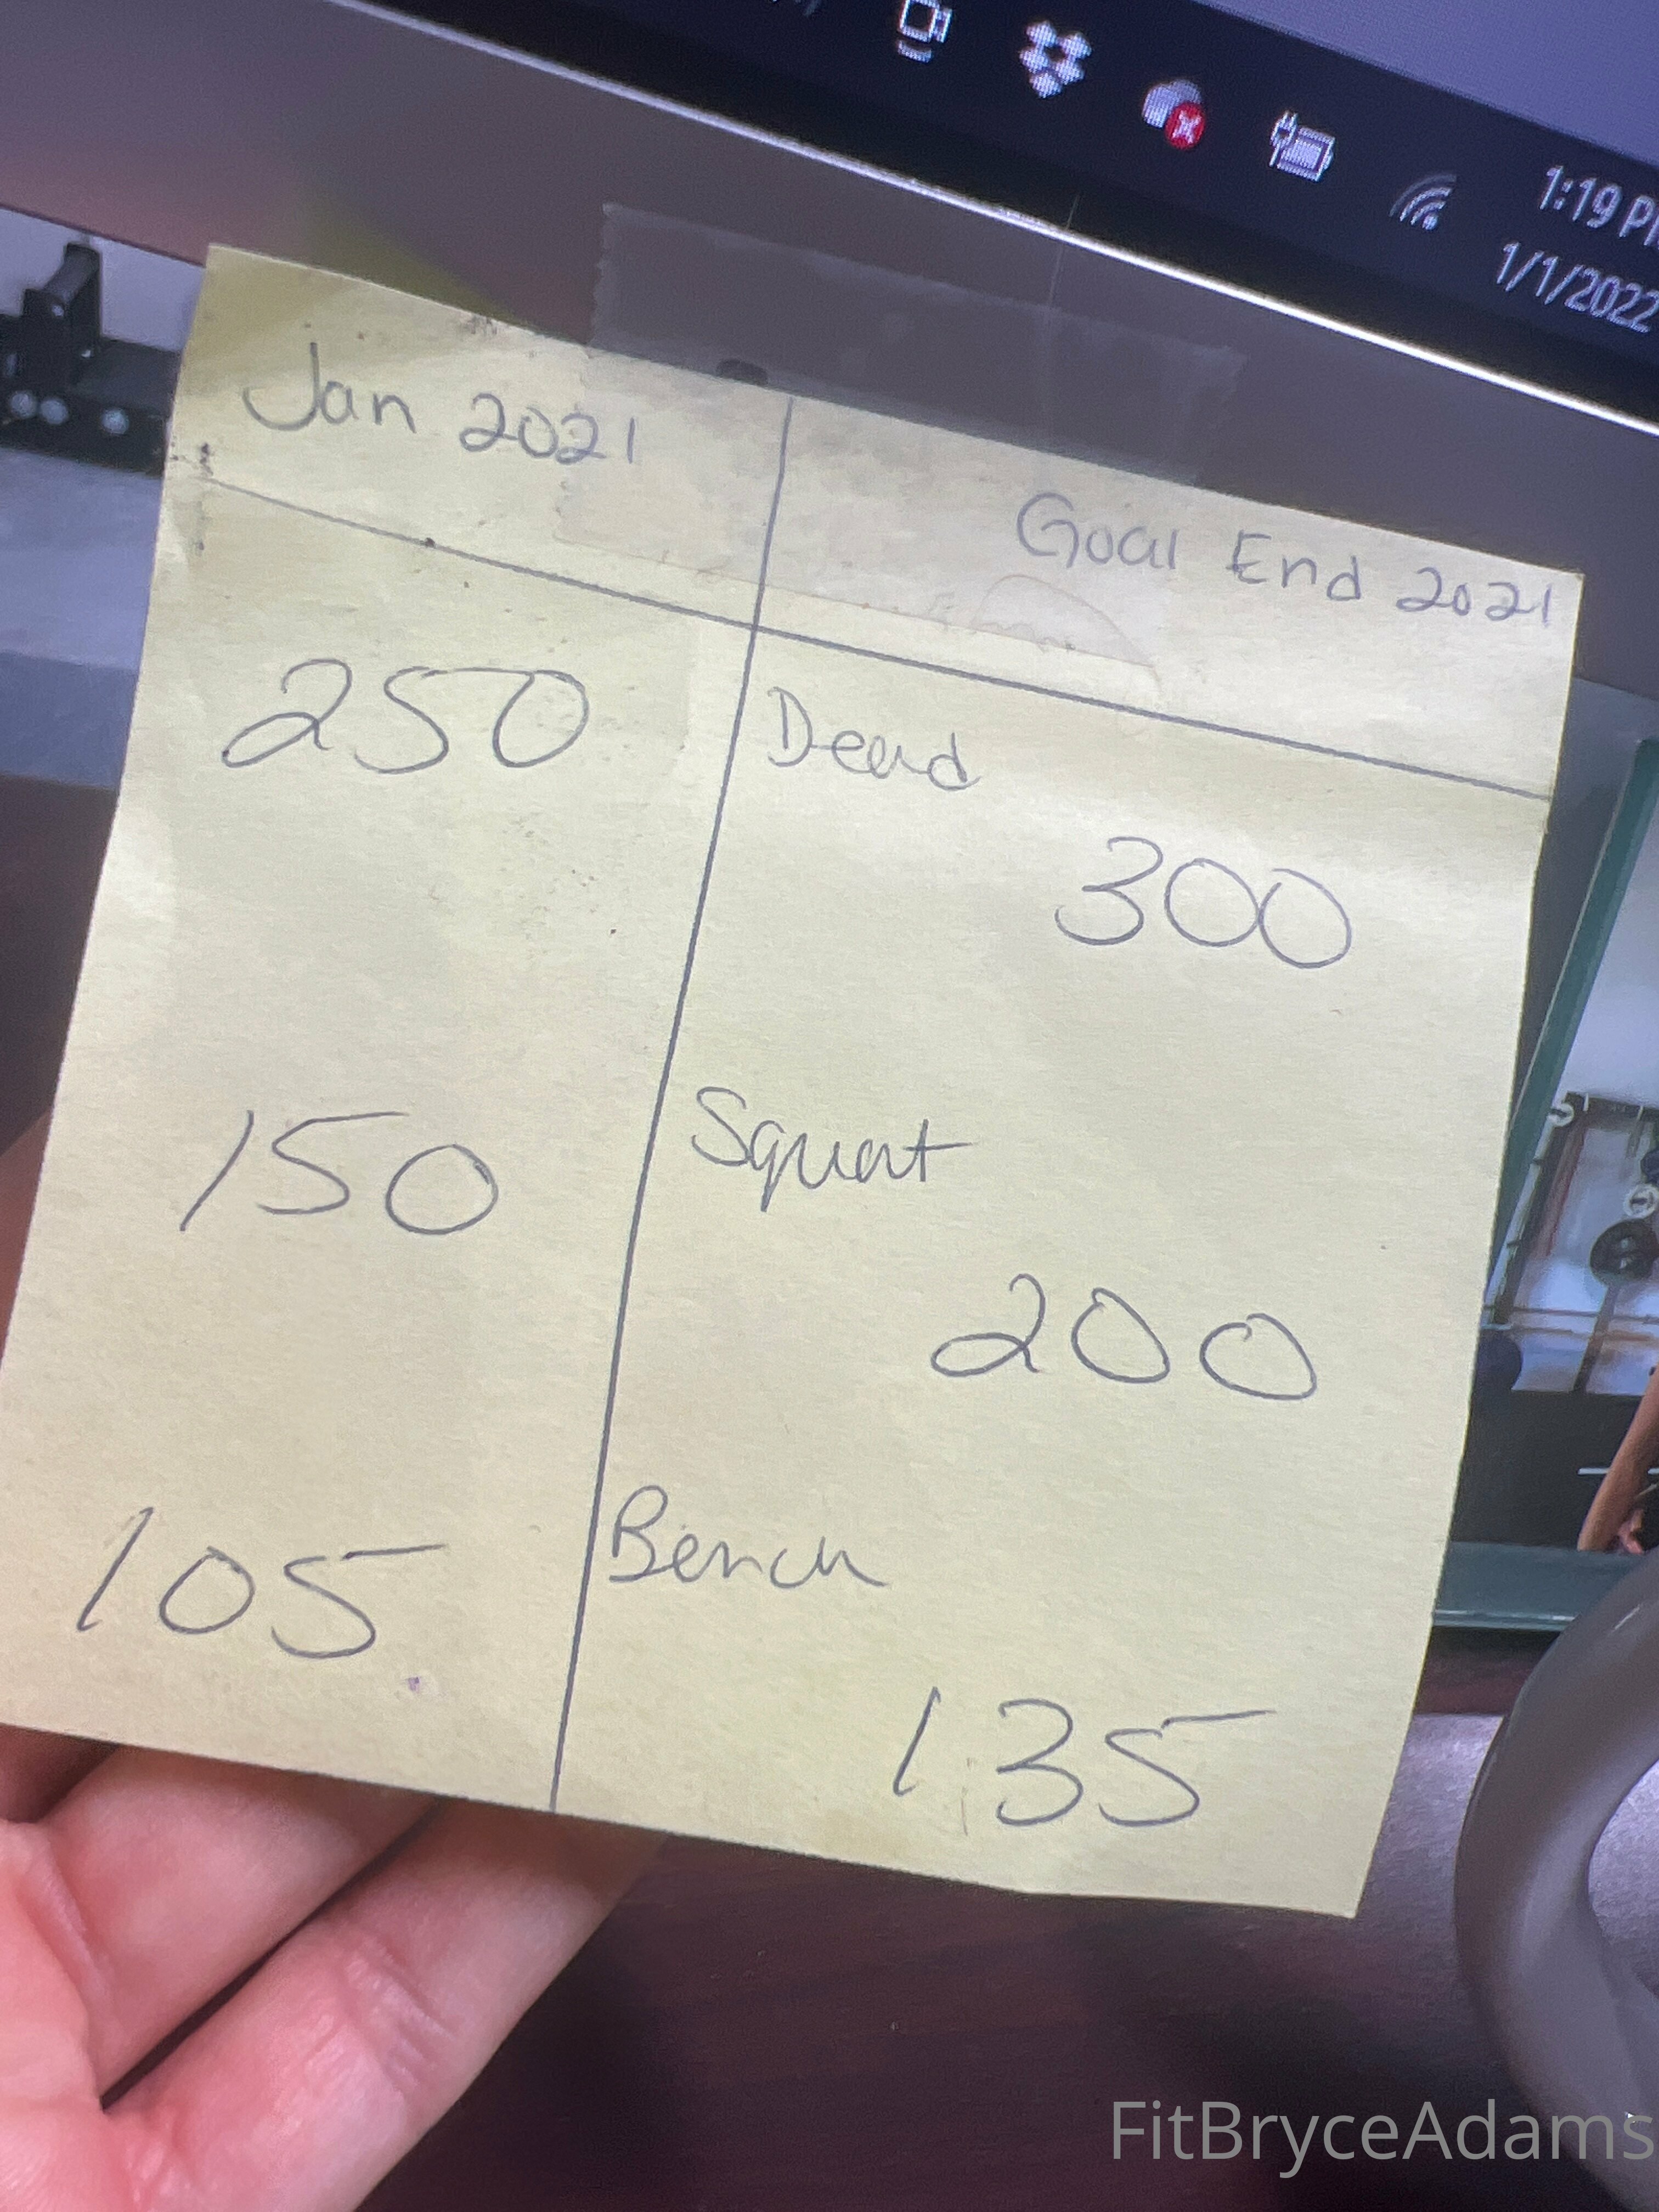 1:19
1/1/2022
Jan 2021
Goal End 2021
250
Dead
300
150
Squat
200
105
Bench
135
FitBryceAdams